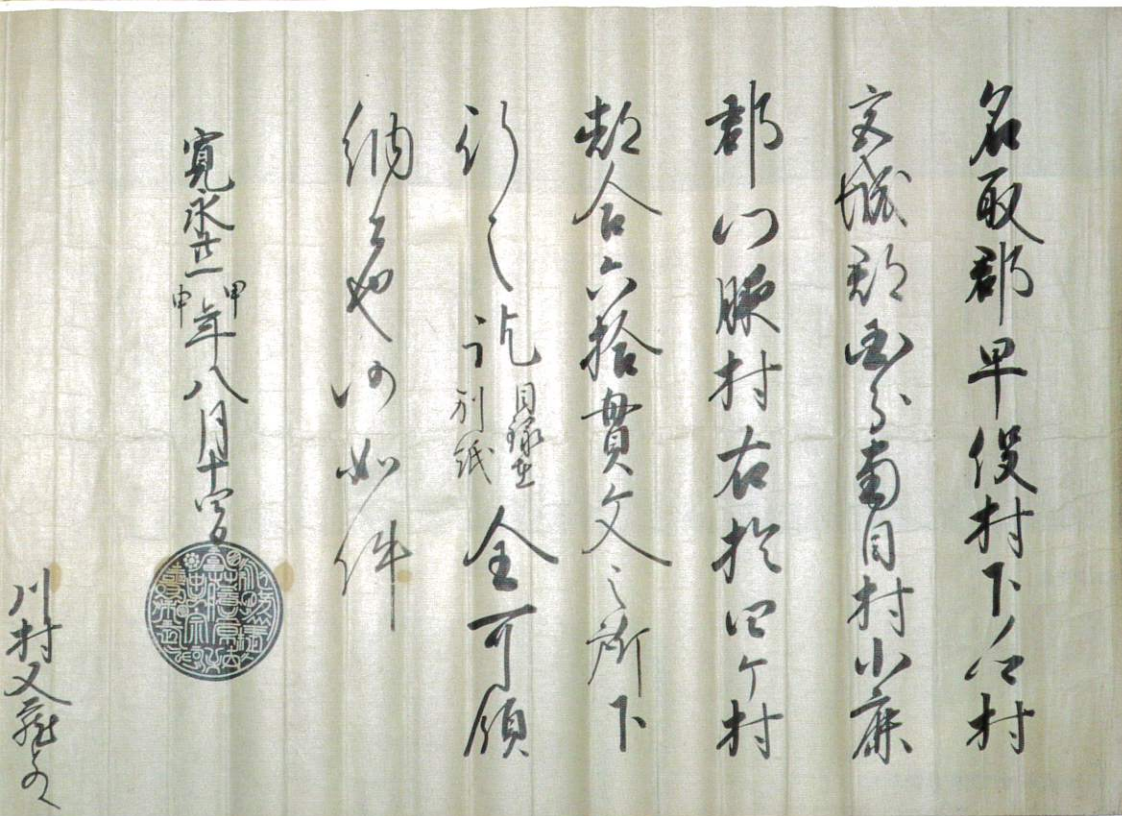 名取郡早股村下ノ村
宮城郡国分南目村小鹿
郡門脇村右於四ケ村
都合六拾貫文之所下
行之訖目録在別紙全可領
納者也仍如件
寛永廿一年甲申八月十四日
川村又蔵とのへ